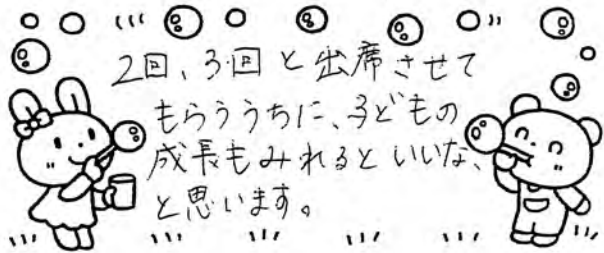 2回、3回と出席させて
もらううちに、子どもの
成長もみれるといいな、
と思います。